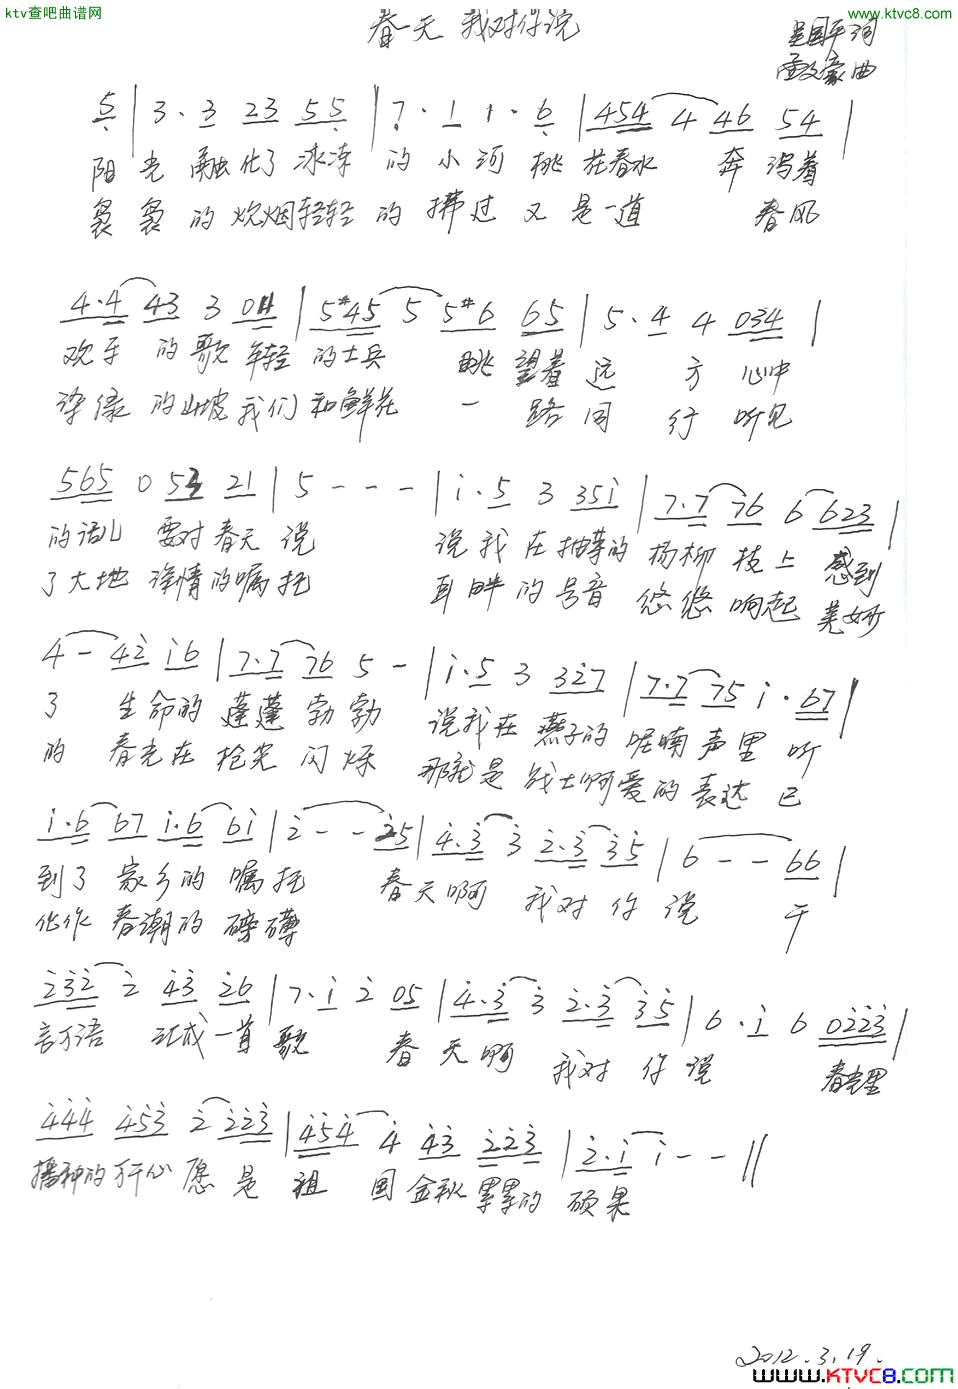 ktv查吧曲谱网
www.ktvc8.com
春天 我对你说
吴国平 词
孟文豪 曲
5 | 3 · 3 23 55 | 7 · 1 1 · 6 | 454 4 46 54 |
阳光融化了冰冻的小河 桃花春水 奔涌着
袅袅的炊烟轻轻的拂过 又是一道 春风
4·4 43 3 011 | 5#45 5 5#6 65 | 5 · 4 4 034 |
欢乐的歌 年轻的士兵 眺望着远方 心中
染绿的山坡 我们和鲜花 一路同行 听见
565 0 53 21 | 5 - - - | i · 5 3 35i | 7·7 76 6 623 |
的话儿 要对春天说 说我在抽芽的杨柳枝上 感到
了大地 深情的嘱托 耳畔的号音 悠悠响起 美妙
4 - 42 i6 | 7·7 76 5 - | i · 5 3 327 | 7·7 75 i · 67 |
了 生命的蓬蓬勃勃 说我在燕子的呢喃声里 听
的 春光在枪尖闪烁 那就是战士啊爱的表达 已
i·6 67 i·6 6i | 2 - - 25 | 4·3 3 2·3 35 | 6 - - 66 |
到了家乡的嘱托 春天啊 我对你说 千
化作春潮的磅礴
232 2 43 26 | 7 · i 2 05 | 4·3 3 2·3 35 | 6 · i 6 0223 |
言万语 汇成一首歌 春天啊 我对你说 春光里
444 453 2 223 | 454 4 43 223 | 2·i i - - ||
播种的 心愿 是祖国金秋累累的硕果
2012.3.19.
www.KTVC8.com